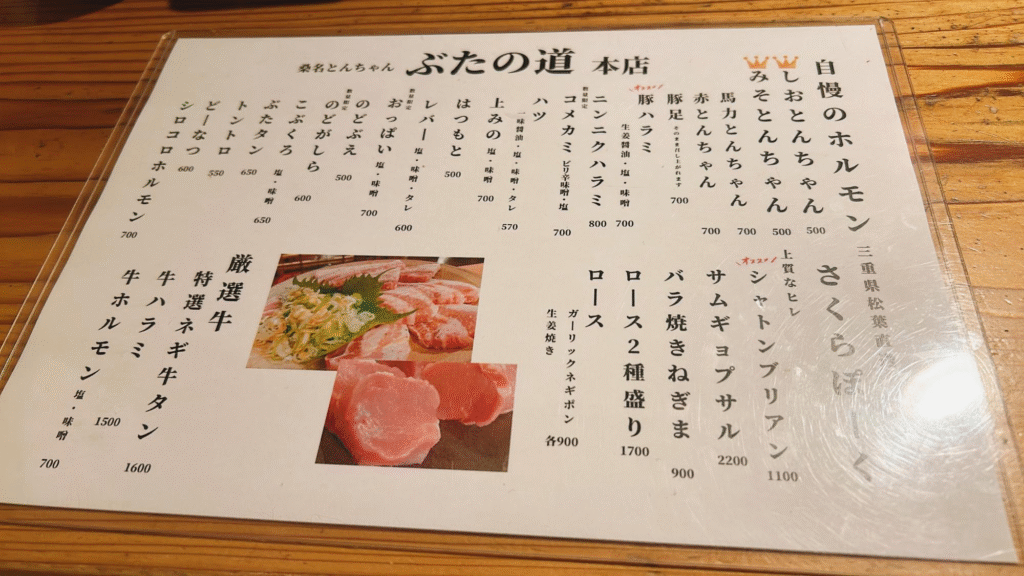 桑名とんちゃん ぶたの道 本店
自慢のホルモン
しおとんちゃん 500
みそとんちゃん 500
馬力とんちゃん 700
赤とんちゃん 700
豚足 そのまま召し上がれます 700
オススメ!
豚ハラミ 生姜醤油・塩・味噌 700
ニンニクハラミ 800
数量限定
コメカミ ピリ辛味噌・塩 700
ハツ 一味醤油・塩・味噌・タレ 570
上みの 塩・味噌 700
はつもと 500
レバー 塩・味噌・タレ 600
数量限定
おっぱい 塩・味噌 700
のどぶえ 500
数量限定
のどがしら 600
こぶくろ 塩・味噌 650
ぶたタン 650
トントロ 550
どーなつ 600
シロコロホルモン 700
三重県松葉直
さくらぽーく
上質なヒレ
オススメ!
シャトンブリアン 1100
サムギョプサル 2200
バラ焼きねぎま 900
ロース2種盛り 1700
ロース
ガーリックネギポン
生姜焼き
各900
厳選牛
特選ネギ牛タン 1600
牛ハラミ 1500
牛ホルモン 塩・味噌 700